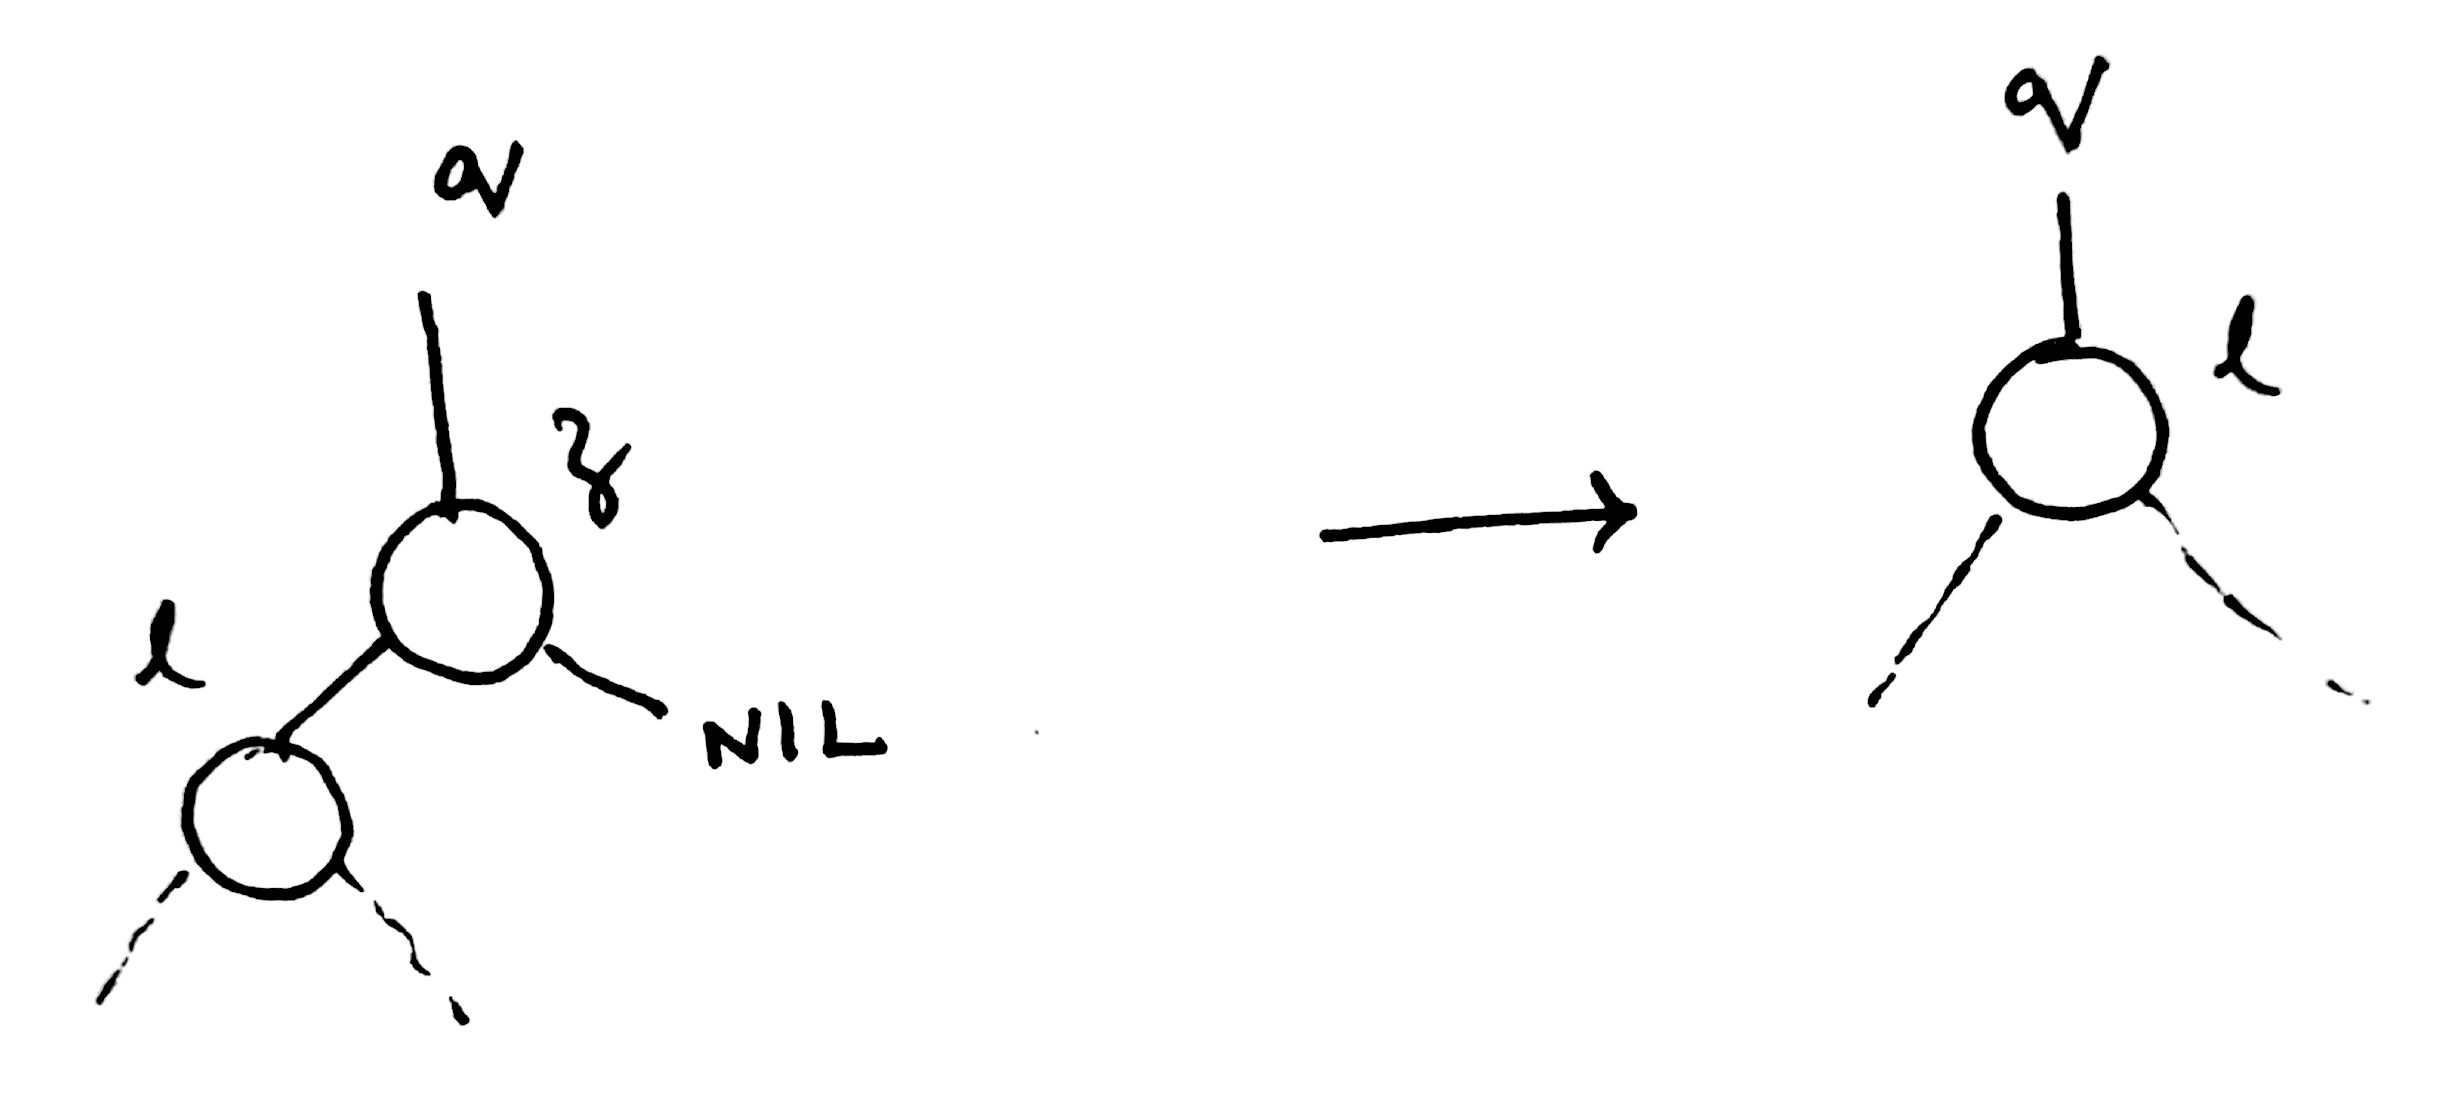 q
z
l
NIL
q
l